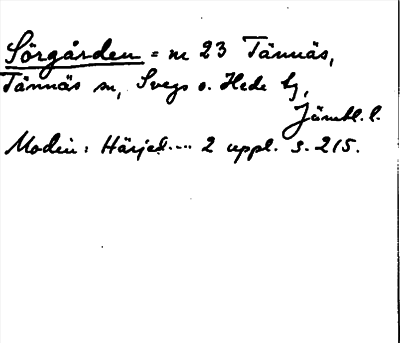 Sörgården = nr 23 Tännäs,
Tännäs sn, Svegs o. Hede tg,
Jämtl. l.
Modin: Härjed.... 2 uppl. s. 215.